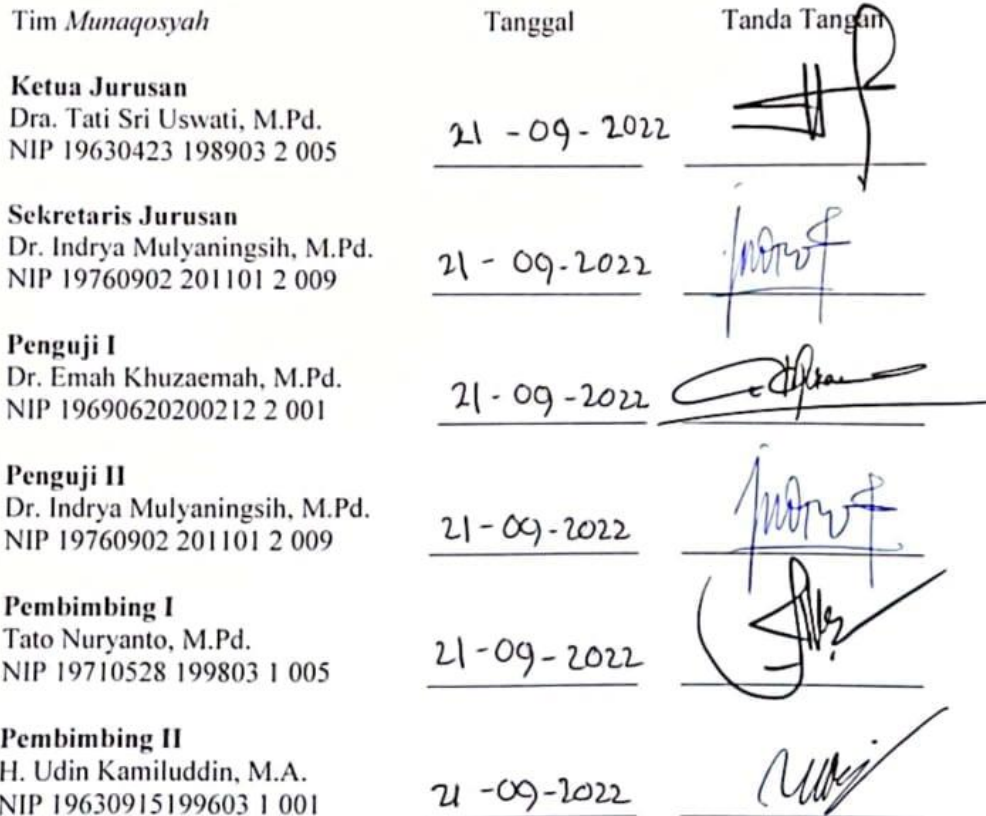 Tim Munaqosyah Tanggal Tanda Tangan
Ketua Jurusan
Dra. Tati Sri Uswati, M.Pd.
NIP 19630423 198903 2 005 21 - 09 - 2022
Sekretaris Jurusan
Dr. Indrya Mulyaningsih, M.Pd.
NIP 19760902 201101 2 009 21 - 09 - 2022
Penguji I
Dr. Emah Khuzaemah, M.Pd.
NIP 19690620200212 2 001 21 - 09 - 2022
Penguji II
Dr. Indrya Mulyaningsih, M.Pd.
NIP 19760902 201101 2 009 21 - 09 - 2022
Pembimbing I
Tato Nuryanto, M.Pd.
NIP 19710528 199803 1 005 21 - 09 - 2022
Pembimbing II
H. Udin Kamiluddin, M.A.
NIP 19630915199603 1 001 21 - 09 - 2022